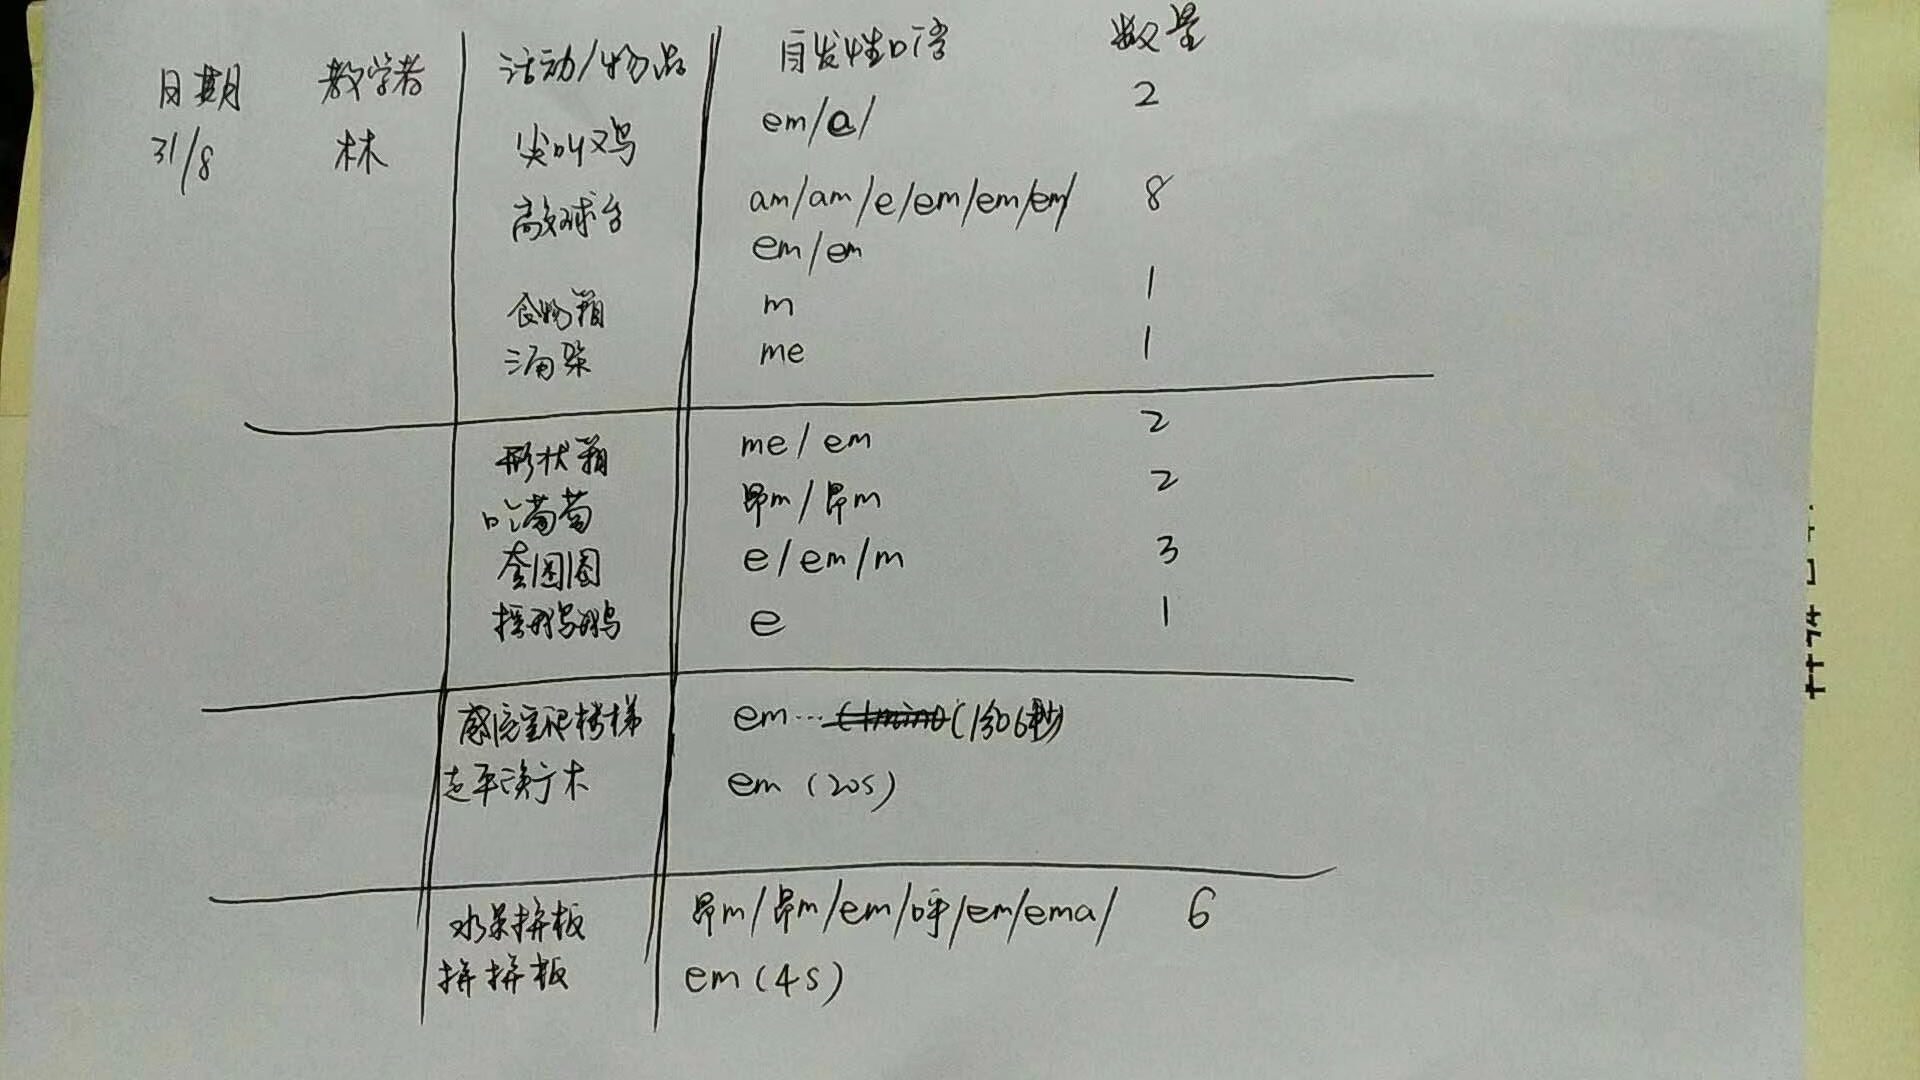 日期 教学者 活动/物品 自发性口语 数量
31/8 林 尖叫鸡 em/a/ 2
敲球台 am/am/e/em/em/em/ 8
em/em
食物箱 m 1
me 1
形状箱 me/em 2
吃葡萄 昂m/昂m 2
套圈圈 e/em/m 3
e 1
感统室爬楼梯 em…(1分06秒)
走平衡木 em (20s)
水果拼板 昂m/昂m/em/呼/em/ema/ 6
拼拼板 em(4s)